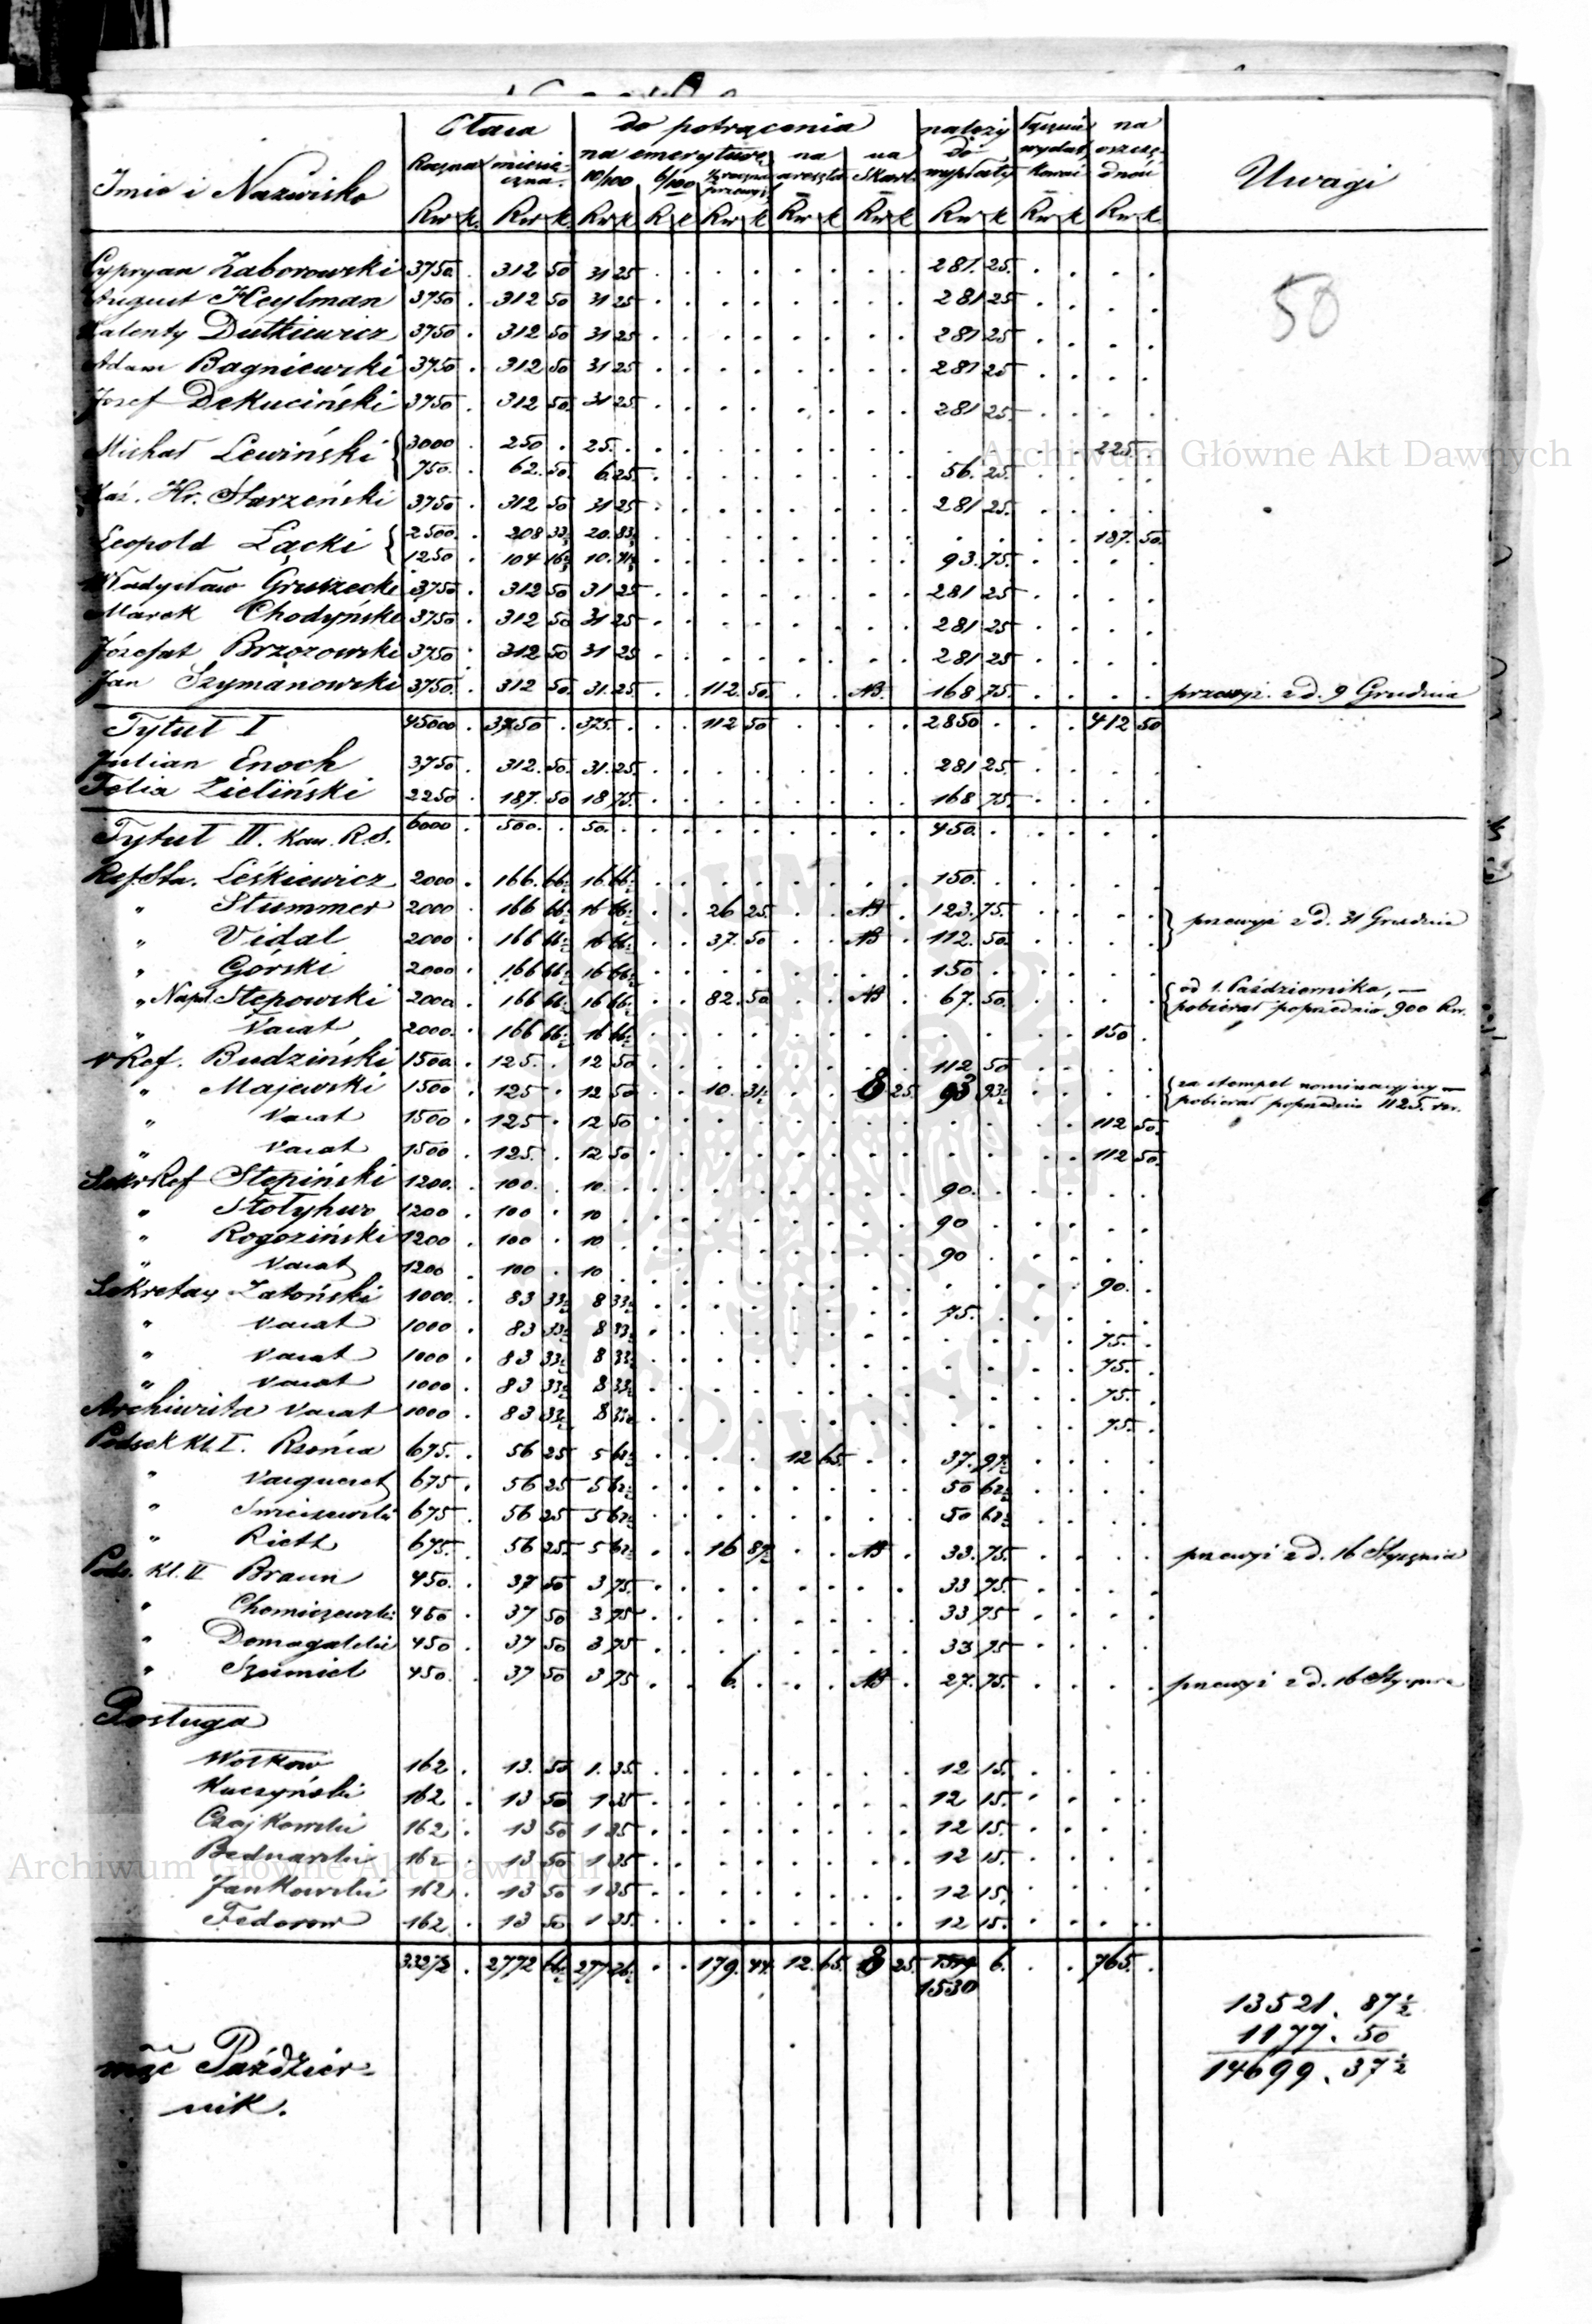 Imie i Nazwisko Płaca do potrącenia należy do wypłaty na oszczędność Uwagi
Roczna miesięczna na emeryturę na areszta na Skarb
10/100 6/100
Rsr k. Rsr k. Rsr k R k Rsr k Rsr k Rsr k Rsr k Rsr k Rsr k
50
Cypryan Zaborowski 3750 . 312 50 31 25 281. 25.
August Heylman 3750 . 312 50 31 25 281 25
Walenty Dutkiewicz 3750 . 312 50 31 25 281 25
Adam Bagniewski 3750 . 312 50 31 25 281 25
Józef Dekuciński 3750 . 312 50. 31 25. 281 25.
Michał Lewiński { 3000 . 250 . 25. . 225.
750. . 62. 50. 6. 25. 56. 25.
Kaź. Hr. Starzeński 3750 . 312 50 31 25 281 25.
Leopold Łącki { 2500. . 208 33⅓ 20. 83⅓ 187. 50.
1250 . 104 16⅔ 10. 41⅔ 93. 75.
Władysław Gruszecki 3750 . 312 50 31 25 281 25
Marek Chodyński 3750 . 312 50 31 25 281 25
Józefat Brzozowski 3750 . 312 50 31 25 281 25
Jan Szymanowski 3750. . 312 50. 31. 25. 112. 50. NB. 168 75. przewyż. z d. 9 Grudnia
Tytuł I 45000 . 3750 . 375. . 112 50 2850 . 412 50
Julian Enoch 3750 . 312. 50. 31. 25. 281 25.
Felix Zieliński 2250 . 187. 50 18 75. 168 75.
Tytuł II. Kan. R.S. 6000 . 500. . 50. . 450. .
Ref. Sta. Leśkiewicz 2000 . 166. 66⅔ 16. 66⅔ 150. .
" Stummer 2000 . 166 66⅔ 16 66⅔ 26 25. NB . 123. 75. } przewyż z d. 31 Grudnia
" Vidal 2000 . 166 66⅔ 16 66⅔ 37. 50 NB . 112. 50.
" Górski 2000 . 166 66⅔ 16 66⅔ 150 .
" Nadl Stępowski 2000 . 166 66⅔ 16 66⅔ 82. 50 NB . 67. 50. { od 1. Października, —
pobierał poprzednio 900 Rsr.
" Vacat 2000. . 166 66⅔ 16 66⅔ 150 .
V Ref. Budziński 1500 . 125. . 12 50 112 50
" Majewski 1500 . 125 . 12 50 10. 31½ 8 25. 93 93½ { za stempel nominacyjny —
pobierał poprzednio 1125. rsr.
" Vacat 1500 . 125 . 12 50 112 50.
" Vacat 1500 . 125. . 12 50 112 50.
Sekr Ref Stępiński 1200. . 100. . 10. . 90. .
" Stołyhwo 1200 . 100 . 10 . 90 .
" Rogoziński 1200 . 100 . 10 . 90 .
" Vacat 1200 . 100 . 10 . 90. .
Sekretarz Zatoński 1000. . 83 33⅓ 8 33⅓ 75. .
" Vacat 1000 . 83 33⅓ 8 33⅓ 75. .
" Vacat 1000 . 83 33⅓ 8 33⅓ 75. .
" Vacat 1000 . 83 33⅓ 8 33⅓ 75. .
Archiwista Vacat 1000 . 83 33⅓ 8 33⅓ 75. .
Podsek Kl. I. Rzońca 675. . 56 25 5 62½ 12 65. 37. 97½
" 675 . 56 25 5 62½ 50 62½
" 675 . 56 25 5 62½ 50 62½
" Rieth 675. . 56 25. 5 62½ 16 87½ NB . 33. 75. przewyż z d. 16 Stycznia
Pods. Kl. II Braun 450. . 37 50 3 75. 33 75.
" Chomiczewski 450 . 37 50 3 75 33 75
" Domagalski 450 . 37 50 3 75 33 75
" Szumiel 450. . 37 50 3 75 6. . NB . 27. 75. przewyż z d. 16 Stycznia
Posługa
Wołkow 162 . 13. 50 1. 35. 12 15.
Kuczyński 162. . 13 50 1 35 12 15.
Czajkowski 162 . 13 50 1 35 12 15.
Bednarski 162 . 13 50 1 35 12 15.
Jankowski 162. . 13 50 1 35 12 15.
Fedorow 162 . 13 50 1 35. 12 15.
33272 . 2772 66⅔ 277 26⅔ 179. 44. 12. 65. 8 25. 6. 765. .
1530
13521. 87½
1177. 50
14699. 37½
mąc Paździer-
nik.
Archiwum Główne Akt Dawnych
Archiwum Główne Akt Dawnych